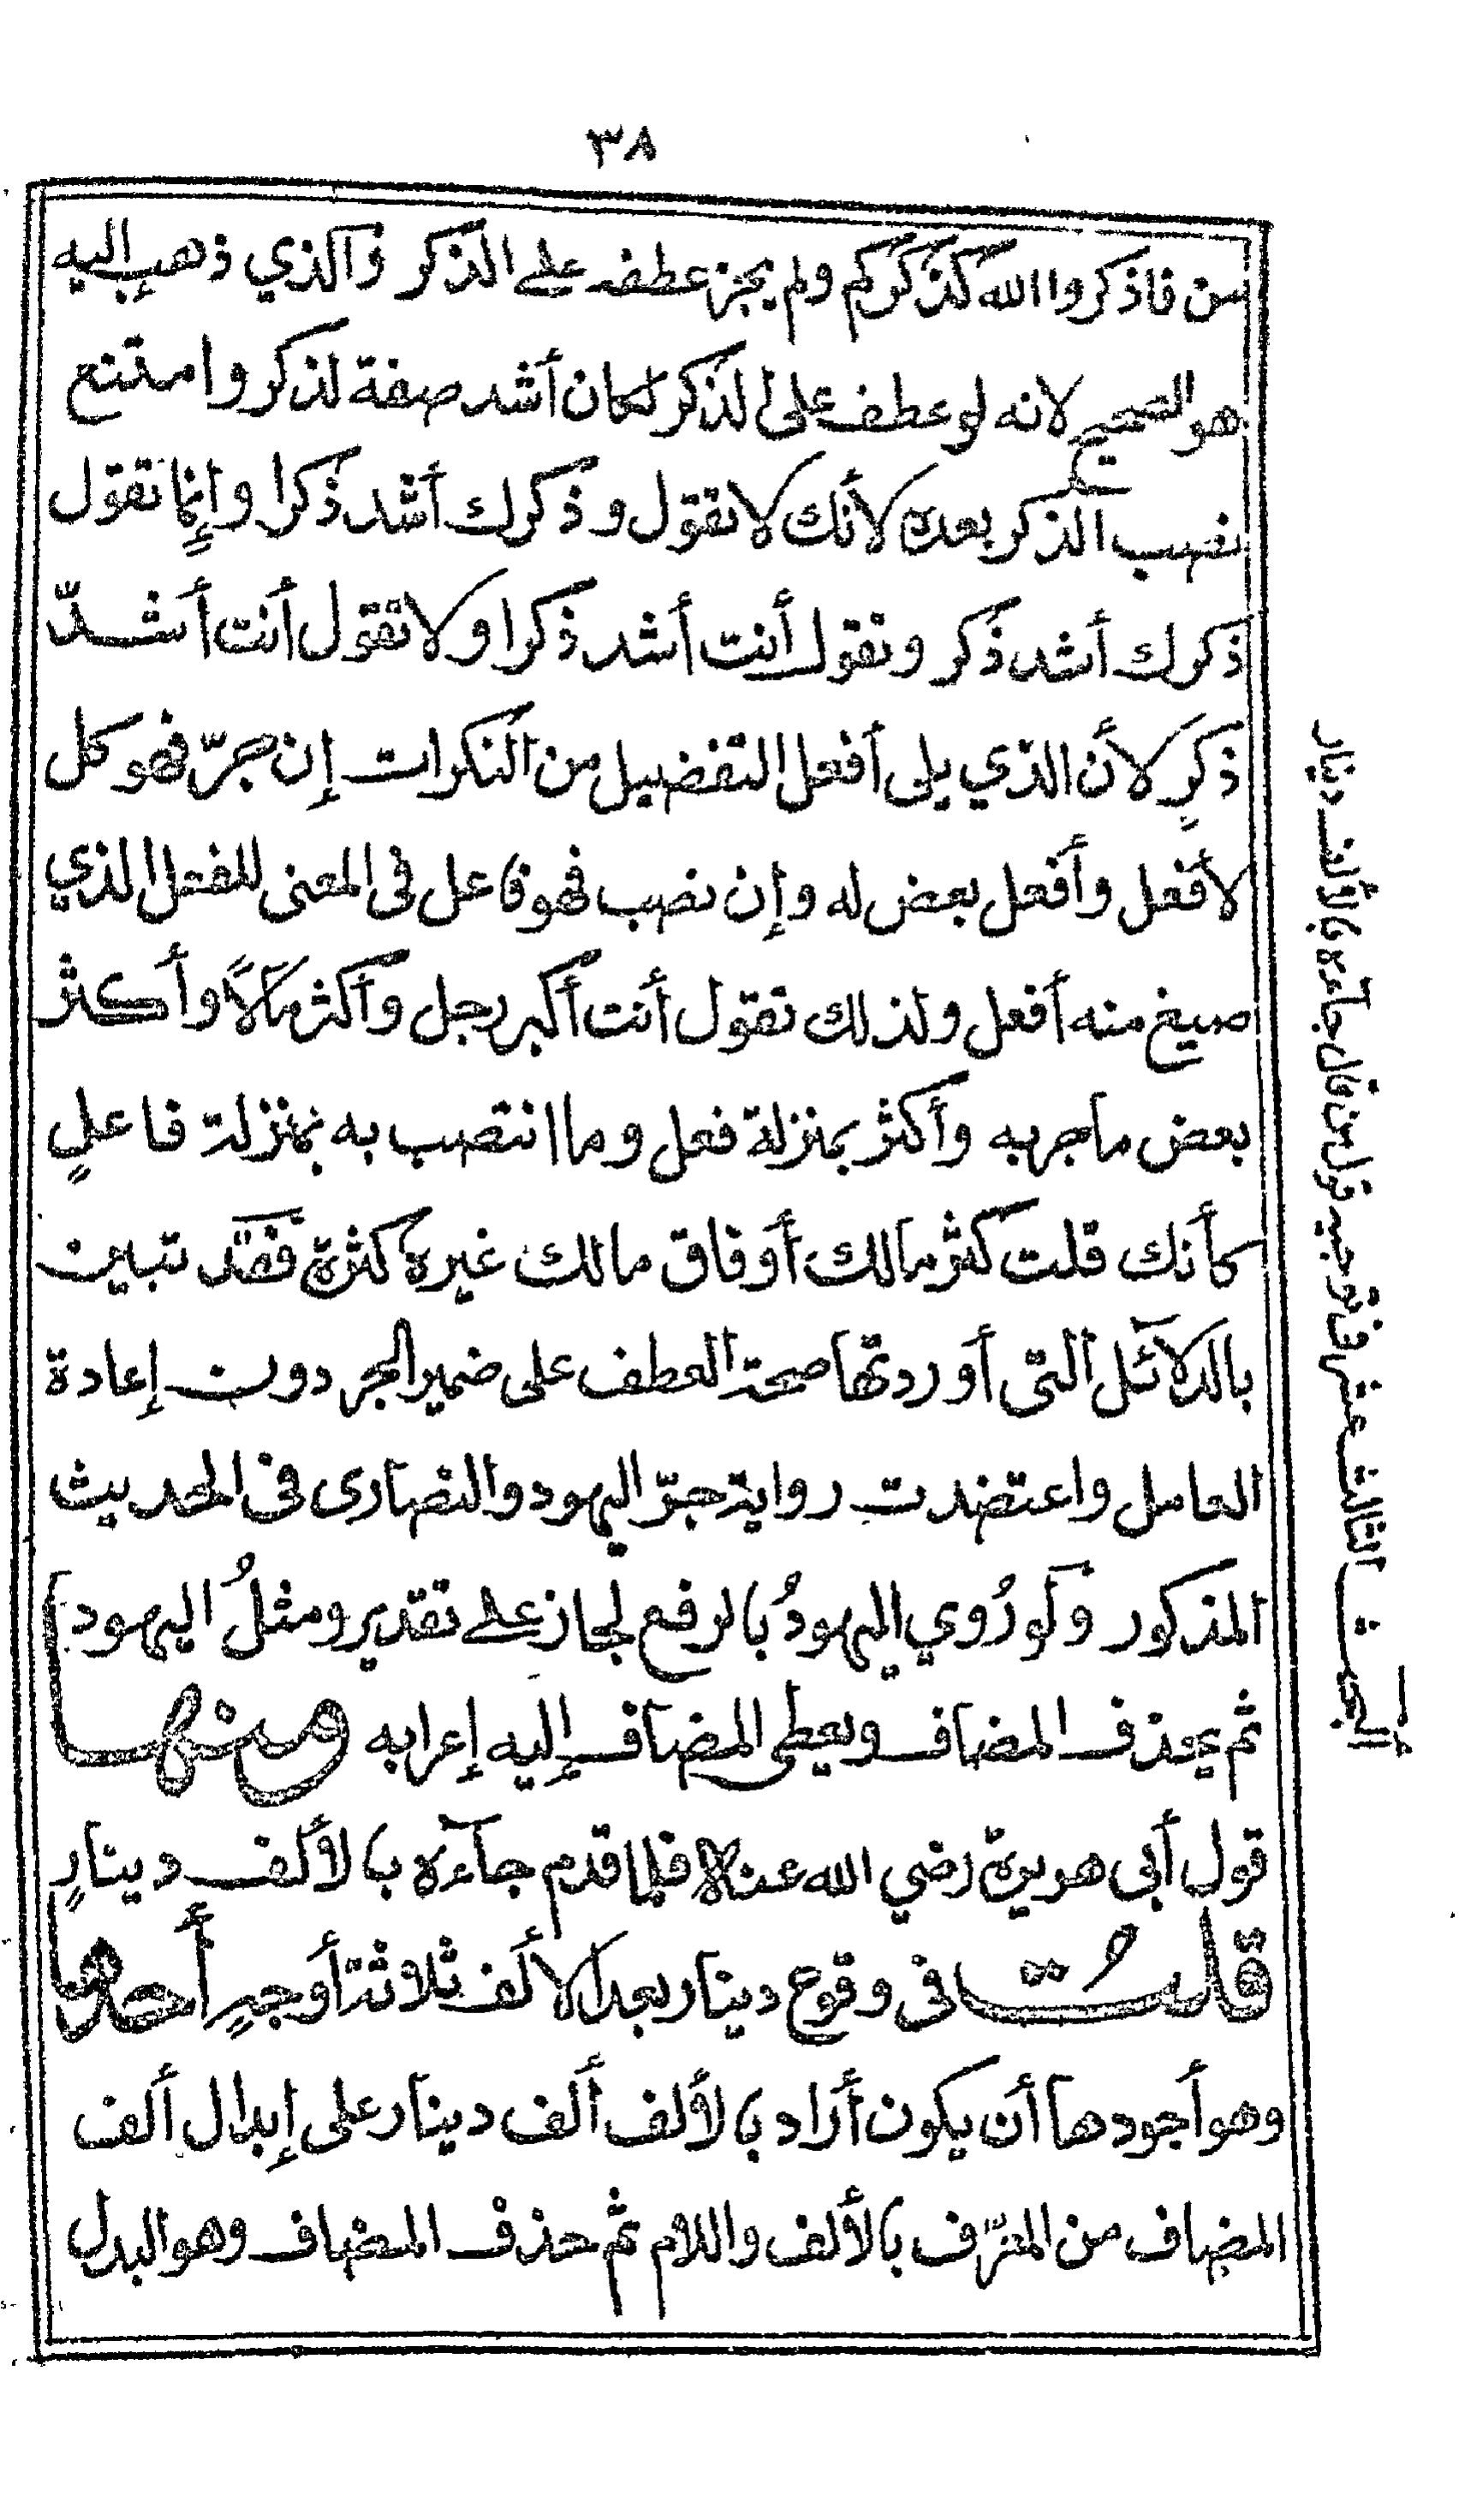 ٣٨
من فاذكروا الله كذكركم ولم يجز عطفه على الذكر والذي ذهب إليه
هو الصحيح لانه لو عطف على الذكر لكان أشد صفة لذكر وامتنع
نصب الذكر بعده لأنك لا تقول وذكرك أشد ذكرا وإنما تقول
ذكرك أشد ذكر وتقول أنت أشد ذكرا ولا تقول أنت أشدّ
ذكرٍ لأن الذي يلى أفعل التفضيل من النكرات إن جرّ فهو كل
لأفعل وأفعل بعض له وإن نصب فهو فاعل فى المعنى للفعل الذي
صيغ منه أفعل ولذلك تقول أنت أكبر رجل وأكثر مالًا وأكثر
بعض ما جر به وأكثر بمنزلة فعل وما انتصب به بمنزلة فاعلٍ
كأنك قلت كثر مالك أو فاق مالك غيره كثرة فقد تبين
بالدلائل التى أوردتها صحة العطف على ضمير الجر دون إعادة
العامل واعتضدت رواية جرّ اليهود والنصارى فى الحديث
المذكور ولو رُوي اليهودُ بالرفع لجاز على تقدير ومثلُ اليهود
ثم يحذف المضاف ويعطى المضاف إليه إعرابه ومنها
قول أبى هريرة رضي الله عنه فلما قدم جآءه بالألف دينارٍ
قلتُ فى وقوع دينار بعد الألف ثلاثة أوجهٍ أحدها
وهو أجودها أن يكون أراد بالألف ألف دينار على إبدال ألف
المضاف من المعرّف بالألف واللام ثم حذف المضاف وهو البدل
ألبحث الثالث عشر فى توجيه قول من قال جآءه بالألف دينار